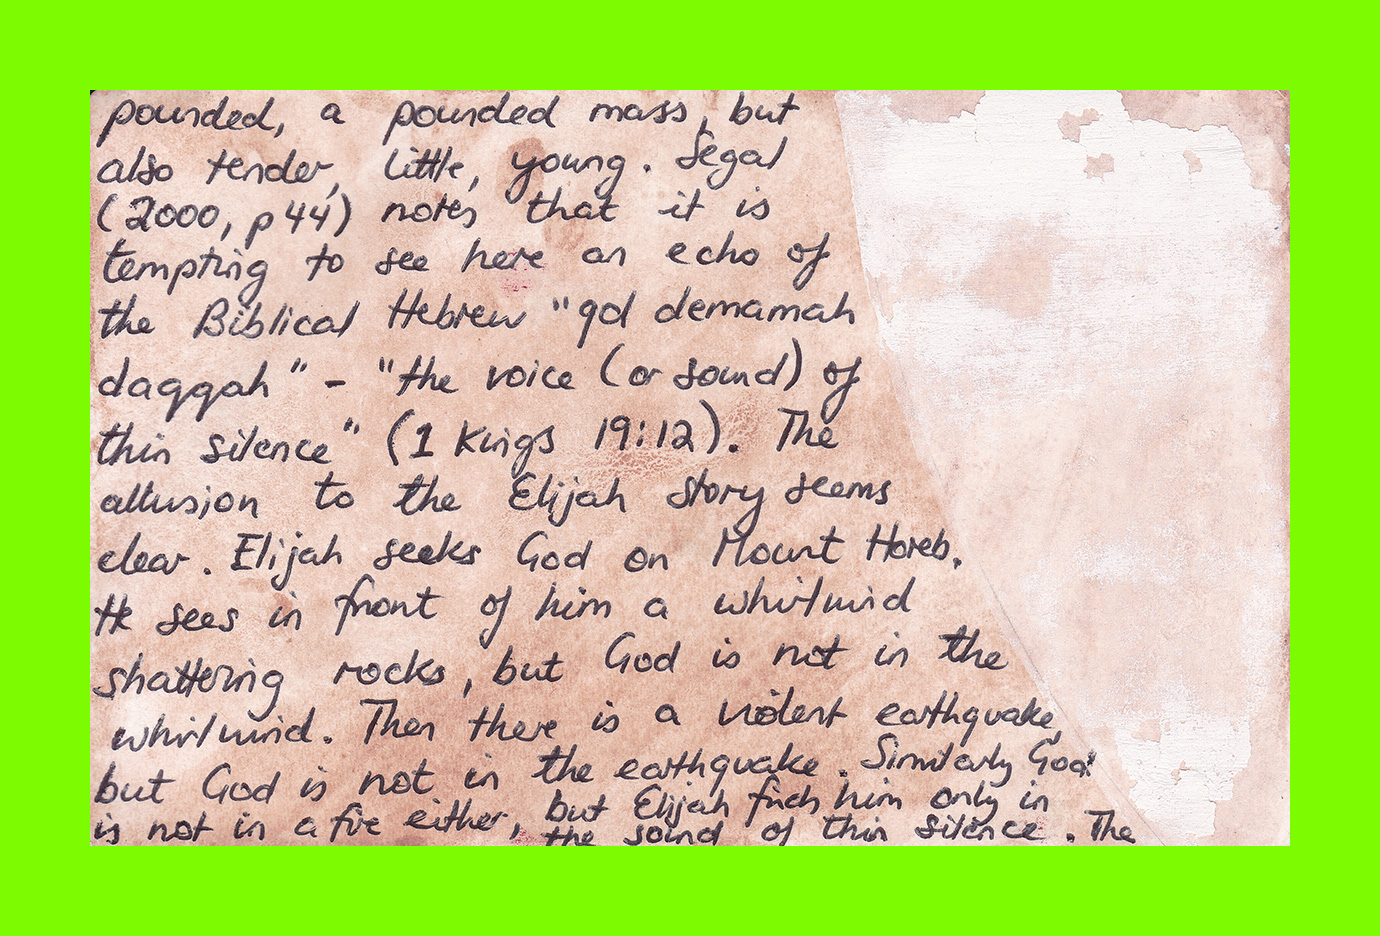 pounded, a pounded mass, but
also tender, little, young. Segal
(2000, p 44) notes that it is
tempting to see here an echo of
the Biblical Hebrew "qol demamah
daqqah" - "the voice (or sound) of
thin silence" (1 Kings 19:12). The
allusion to the Elijah story seems
clear. Elijah seeks God on Mount Horeb.
He sees in front of him a whirlwind
shattering rocks, but God is not in the
whirlwind. Then there is a violent earthquake,
but God is not in the earthquake. Similarly God
is not in a fire either, but Elijah finds him only in
the sound of thin silence. The